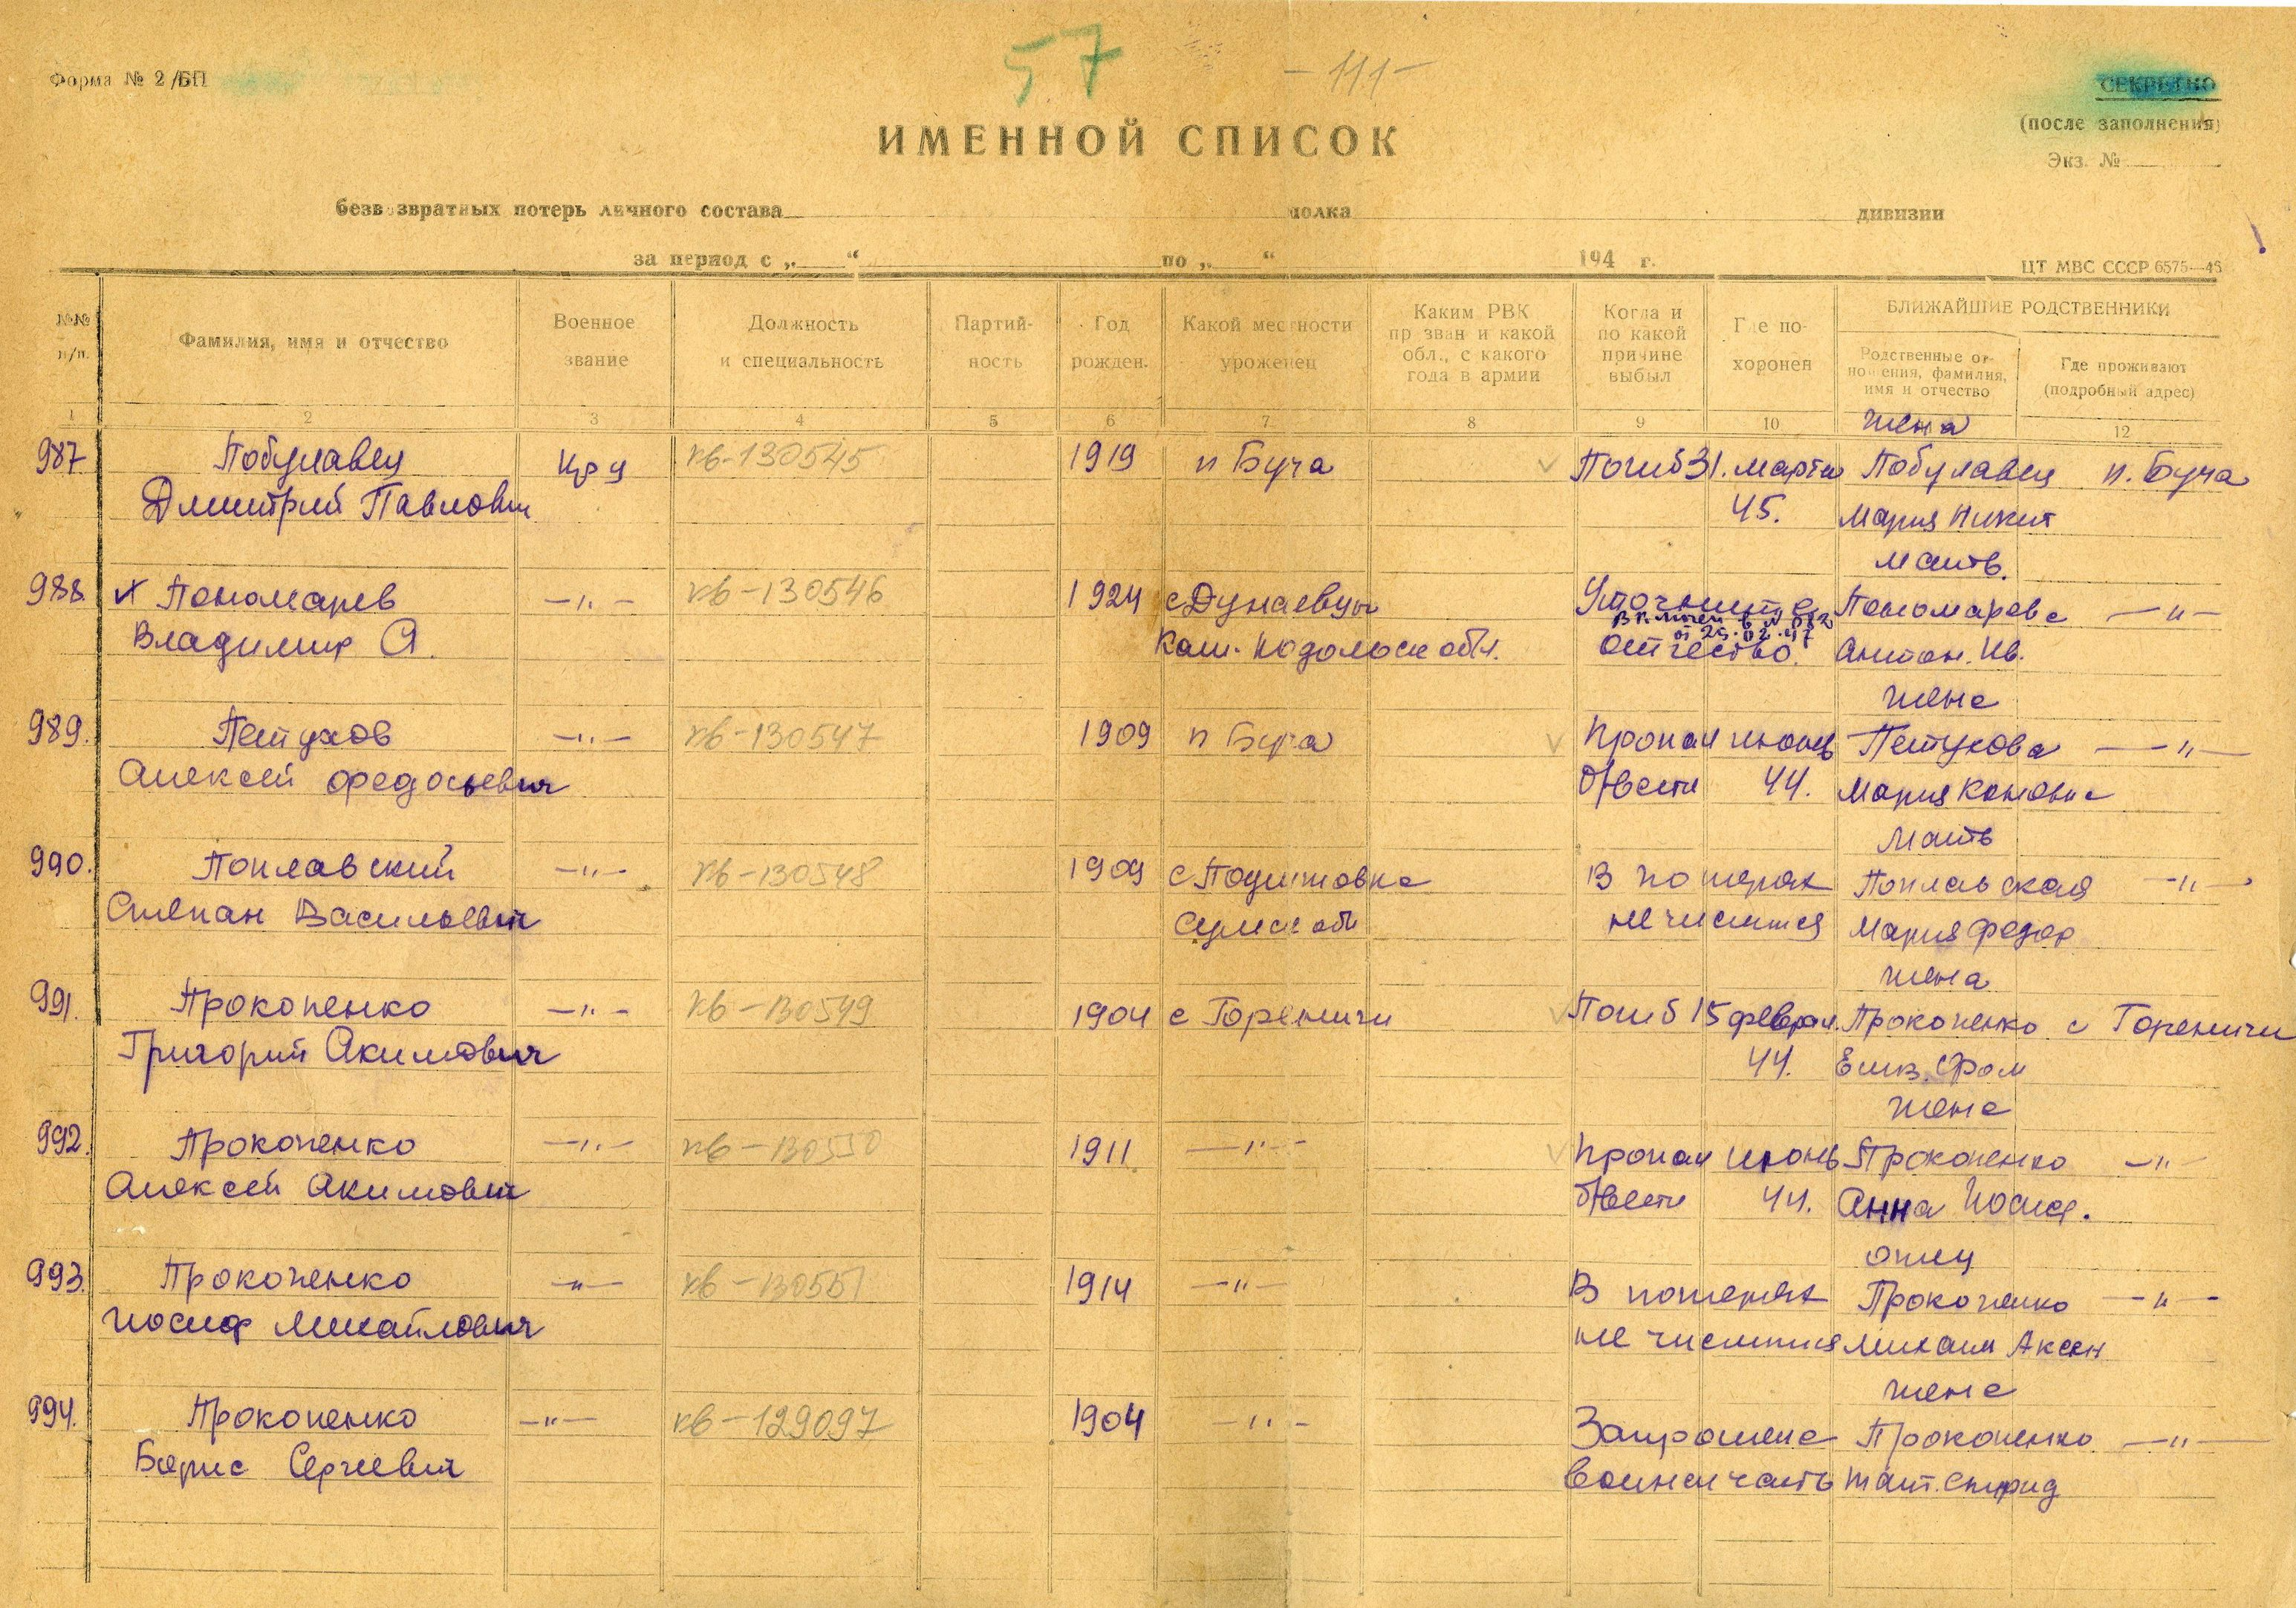 57 -111-
Форма № 2/БП
СЕКРЕТНО
(после заполнения)
Экз. №
ИМЕННОЙ СПИСОК
безвозвратных потерь личного состава полка дивизии
за период с „ “ по „ “ 194 г.
ЦТ МВС СССР 6575—46
№№ п/п.
Фамилия, имя и отчество
Военное звание
Должность и специальность
Партий-ность
Год рожден.
Какой местности уроженец
Каким РВК призван и какой обл., с какого года в армии
Когда и по какой причине выбыл
Где по-хоронен
БЛИЖАЙШИЕ РОДСТВЕННИКИ
Родственные от-ношения, фамилия, имя и отчество
Где проживают (подробный адрес)
1 2 3 4 5 6 7 8 9 10 12
жена
987 Побулавец кр-ц кв-130545 1919 п Буча Погиб 31. марта Побулавец п. Буча
Дмитрий Павлович 45. Мария Никит
мать.
988. х Пономарев —"— кв-130546 1924 с Дунаевцы Уточните Пономарева —"—
Владимир А. Кам. Подольск обл. отчество. Антон. Ив.
от 25.02.47
жена
989. Петухов —"— кв-130547 1909 п Буча Пропал июнь Петухова —"—
Алексей Федосьевич б/вести 44. Мария Кононовна
мать
990. Поплавский —"— кв-130548 1909 с В потерях Поплавская —"—
Степан Васильевич Сумск обл не числится Мария Федор
жена
991. Прокопенко —"— кв-130549 1904 с Гореничи Погиб 15 феврал. Прокопенко с Гореничи
Григорий Акимович 44. Елиз.
жена
992. Прокопенко —"— кв-130550 1911 —"— Пропал июнь Прокопенко —"—
Алексей Акимович б/вести 44. Анна Иосиф.
отец
993. Прокопенко —"— кв-130551 1914 —"— В потерях Прокопенко —"—
Иосиф Михайлович не числится Михаил Аксен
жена
994. Прокопенко —"— кв-129097 1904 —"— Запрошена Прокопенко —"—
Борис Сергеевич воинск часть Тат. Спирид